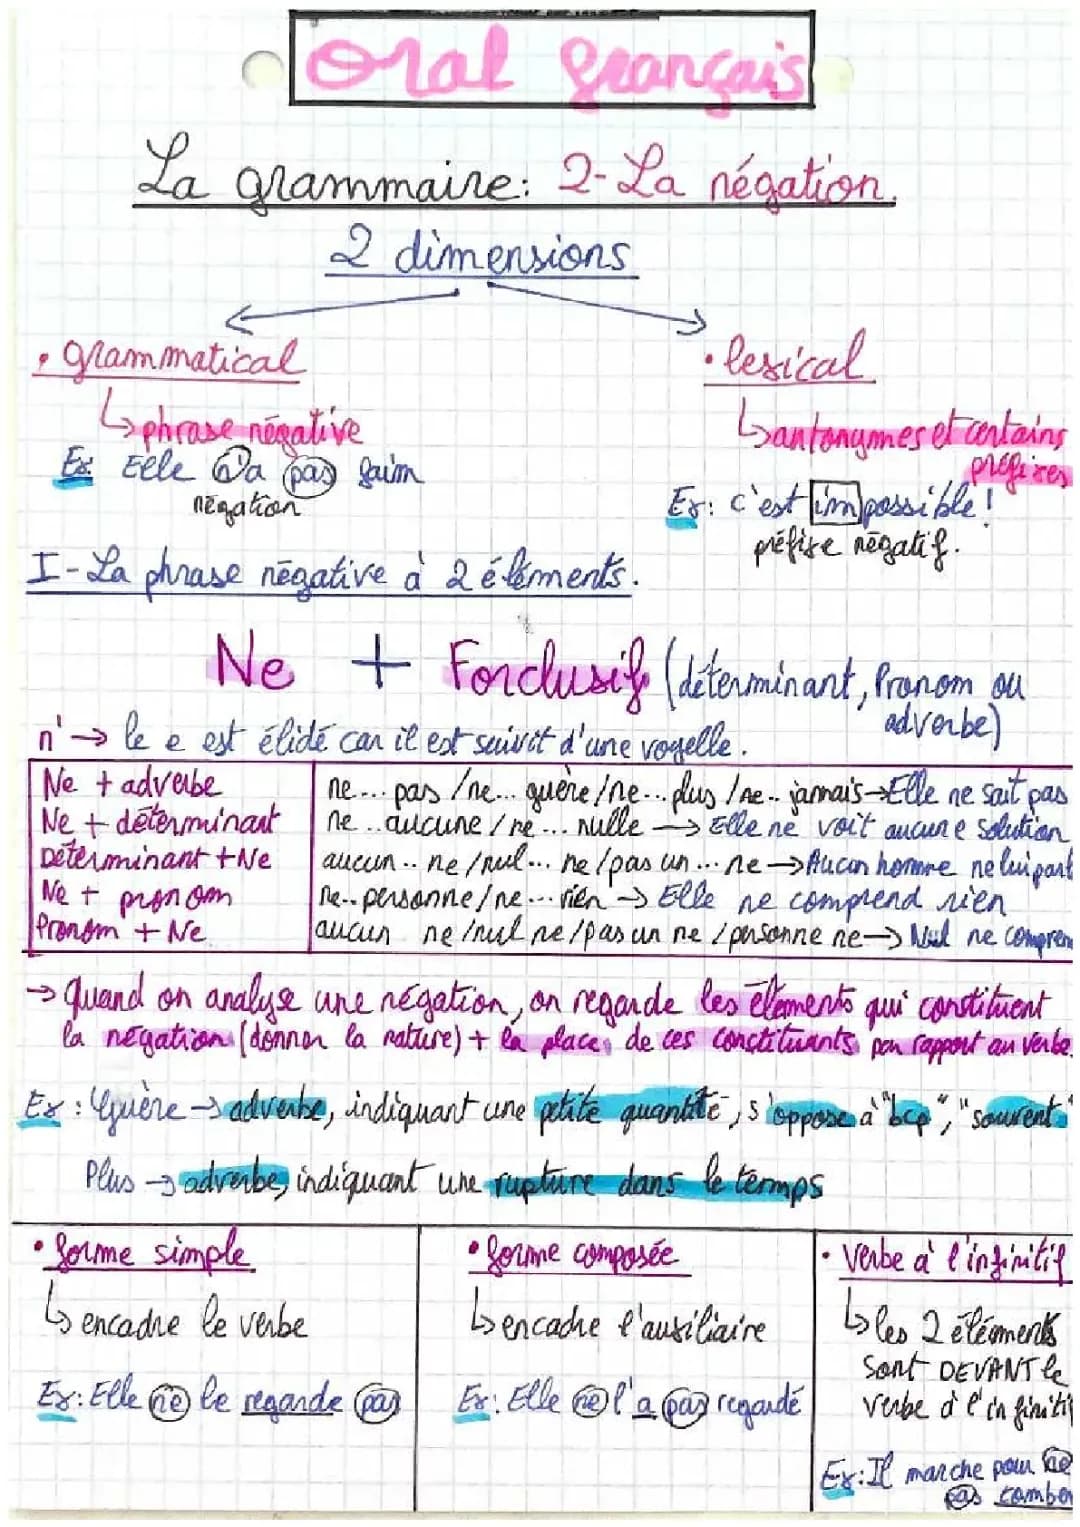 Oral français
La grammaire: 2-La négation.
2 dimensions
• grammatical
↳ phrase négative
Ex: Elle n'a pas faim
négation
• lexical
↳ antonymes et certains
préfixes
Ex: c'est impossible!
préfixe négatif.
I-La phrase négative à 2 éléments.
Ne + Forclusif (déterminant, Pronom ou
adverbe)
n' → le e est élidé car il est suivit d'une voyelle.
Ne + adverbe
ne... pas /ne... guère/ne...plus /ne.. jamais→Elle ne sait pas
Ne + déterminant
ne ..aucune / ne ... nulle → Elle ne voit aucune solution
Déterminant + Ne
aucun .. ne /nul... ne /pas un ... ne →Aucun homme ne lui parl
Ne + pronom
ne.. personne/ne... rien → Elle ne comprend rien
Pronom + Ne
aucun ne /nul ne/pas un ne /personne ne→ Nul ne compren
→ Quand on analyse une négation, on regarde les éléments qui constituent
la négation (donner la nature) + la place de ces constituants par rapport au verbe.
Ex : Guère → adverbe, indiquant une petite quantité, s'oppose à "bcp", "souvent"
Plus → adverbe, indiquant une rupture dans le temps
• forme simple
↳ encadre le verbe
Ex: Elle ne le regarde pas
• forme composée
↳ encadre l'auxiliaire
Ex: Elle ne l'a pas regardé
• Verbe à l'infinitif
↳ les 2 éléments
sont DEVANT le
verbe à l'infiniti
Ex: Il marche pour ne
pas tomber